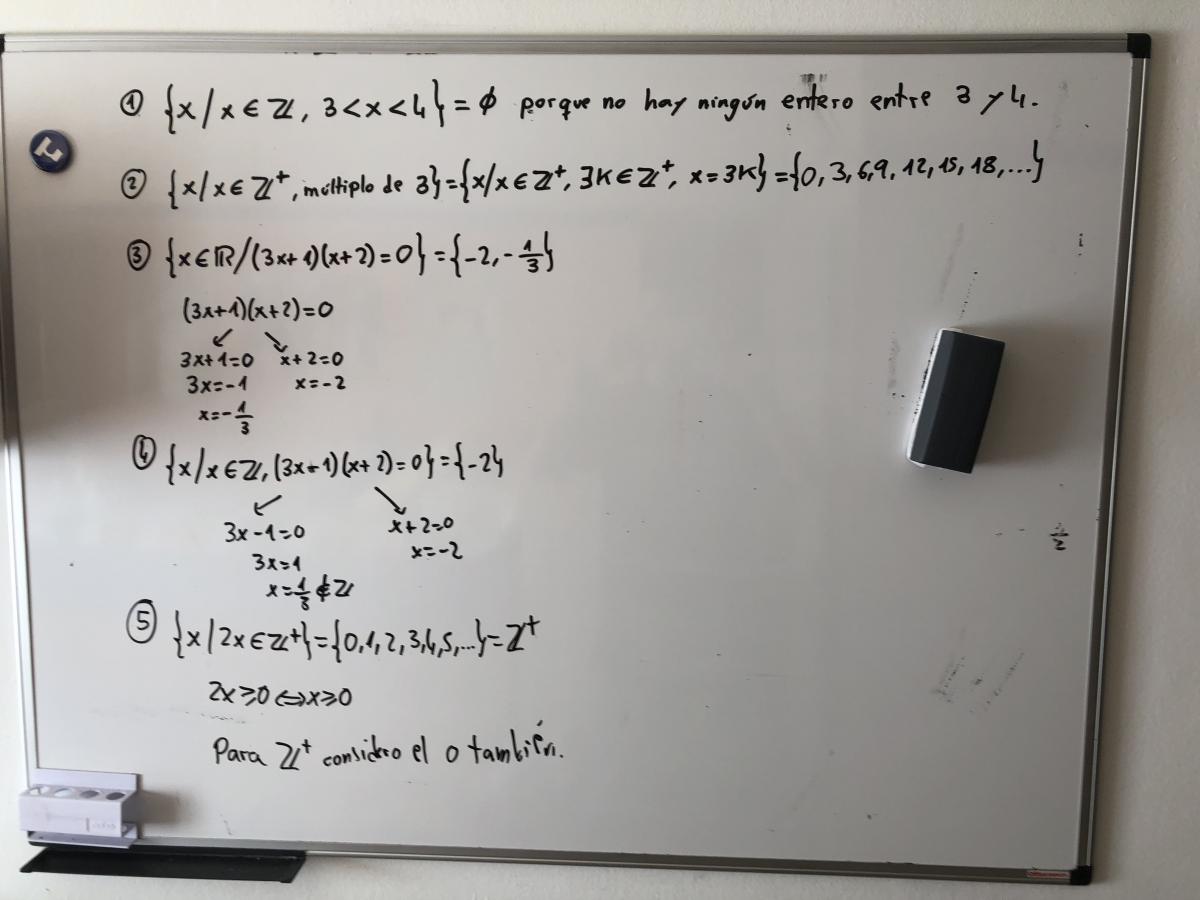 ① {x/x∈ℤ, 3<x<4}=∅ porque no hay ningún entero entre 3 y 4.
② {x/x∈ℤ⁺, múltiplo de 3}={x/x∈ℤ⁺, ∃K∈ℤ⁺, x=3K}={0, 3, 6, 9, 12, 15, 18, ...}
③ {x∈ℝ/(3x+1)(x+2)=0}={-2, -1/3}
(3x+1)(x+2)=0
↙ ↘
3x+1=0 x+2=0
3x=-1 x=-2
x=-1/3
④ {x/x∈ℤ, (3x-1)(x+2)=0}={-2}
↙ ↘
3x-1=0 x+2=0
3x=1 x=-2
x=1/3∉ℤ
⑤ {x/2x∈ℤ⁺}={0, 1, 2, 3, 4, 5, ...}=ℤ⁺
2x≥0⇔x≥0
Para ℤ⁺ considero el 0 también.